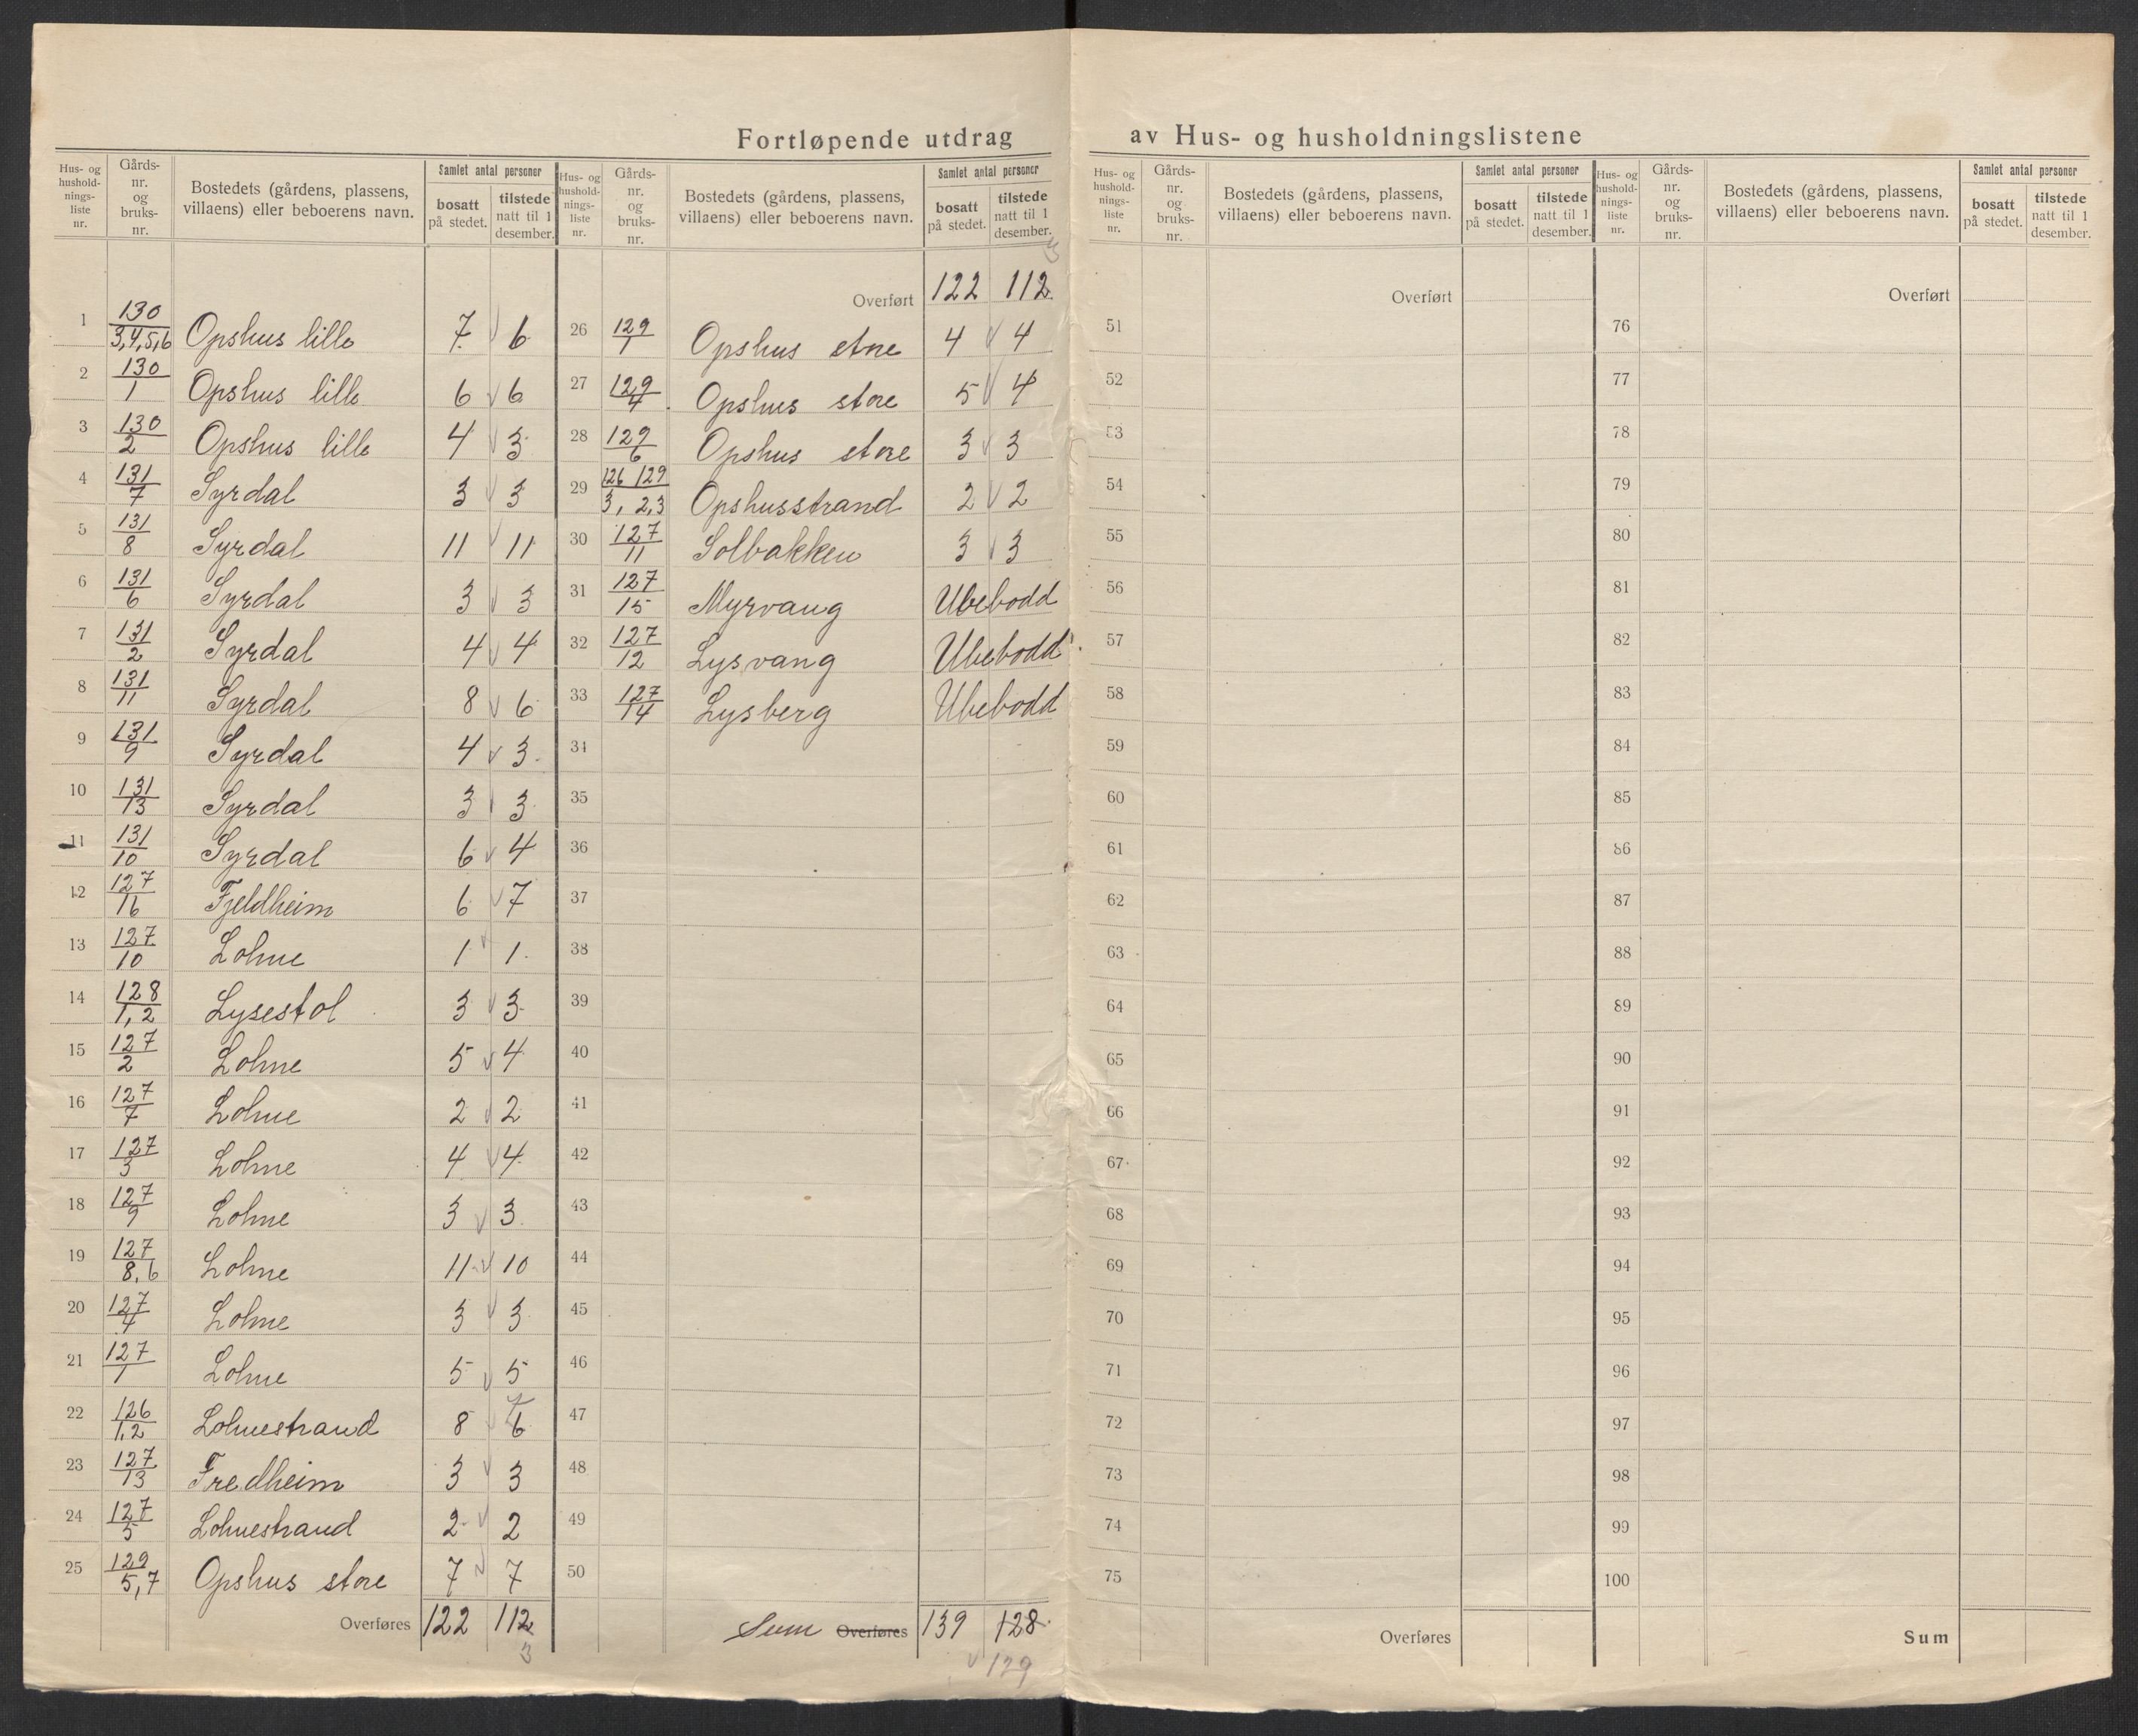 Fortløpende utdrag av Hus- og husholdningslistene
Hus- og hushold-nings-liste nr. | Gårds-nr. og bruks-nr. | Bostedets (gårdens, plassens, villaens) eller beboerens navn. | Samlet antal personer | bosatt på stedet. | tilstede natt til 1 desember.
1 130/3,4,5,6 Opshus lille 7 6
2 130/1 Opshus lille 6 6
3 130/2 Opshus lille 4 3
4 131/7 Syrdal 3 3
5 131/8 Syrdal 11 11
6 131/6 Syrdal 3 3
7 131/2 Syrdal 4 4
8 131/11 Syrdal 8 6
9 131/9 Syrdal 4 3
10 131/13 Syrdal 3 3
11 131/10 Syrdal 6 4
12 127/16 Fjeldheim 6 7
13 127/10 Lohne 1 1
14 128/1,2 Lysestøl 3 3
15 127/2 Lohne 5 4
16 127/7 Lohne 2 2
17 127/3 Lohne 4 4
18 127/9 Lohne 3 3
19 127/8,6 Lohne 11 10
20 127/4 Lohne 3 3
21 127/1 Lohne 5 5
22 126/1,2 Lohnestrand 8 6 7
23 127/13 Fredheim 3 3
24 127/5 Lohnestrand 2 2
25 129/5,7 Opshus store 7 7
Overføres 122 112
3
Hus- og hushold-nings-liste nr. | Gårds-nr. og bruks-nr. | Bostedets (gårdens, plassens, villaens) eller beboerens navn. | Samlet antal personer | bosatt på stedet. | tilstede natt til 1 desember.
3
Overført 122 112
26 129/1 Opshus store 4 4
27 129/4 Opshus store 5 4
28 129/6 Opshus store 3 3
29 126 129/3, 2,3 Opshusstrand 2 2
30 127/11 Solbakken 3 3
31 127/15 Myrvang Ubebodd
32 127/12 Lysvang Ubebodd
33 127/14 Lysberg Ubebodd
34
35
36
37
38
39
40
41
42
43
44
45
46
47
48
49
50
Sum Overføres 139 128
129
Hus- og hushold-nings-liste nr. | Gårds-nr. og bruks-nr. | Bostedets (gårdens, plassens, villaens) eller beboerens navn. | Samlet antal personer | bosatt på stedet. | tilstede natt til 1 desember.
Overført
51
52
53
54
55
56
57
58
59
60
61
62
63
64
65
66
67
68
69
70
71
72
73
74
75
Overføres
Hus- og hushold-nings-liste nr. | Gårds-nr. og bruks-nr. | Bostedets (gårdens, plassens, villaens) eller beboerens navn. | Samlet antal personer | bosatt på stedet. | tilstede natt til 1 desember.
Overført
76
77
78
79
80
81
82
83
84
85
86
87
88
89
90
91
92
93
94
95
96
97
98
99
100
Sum